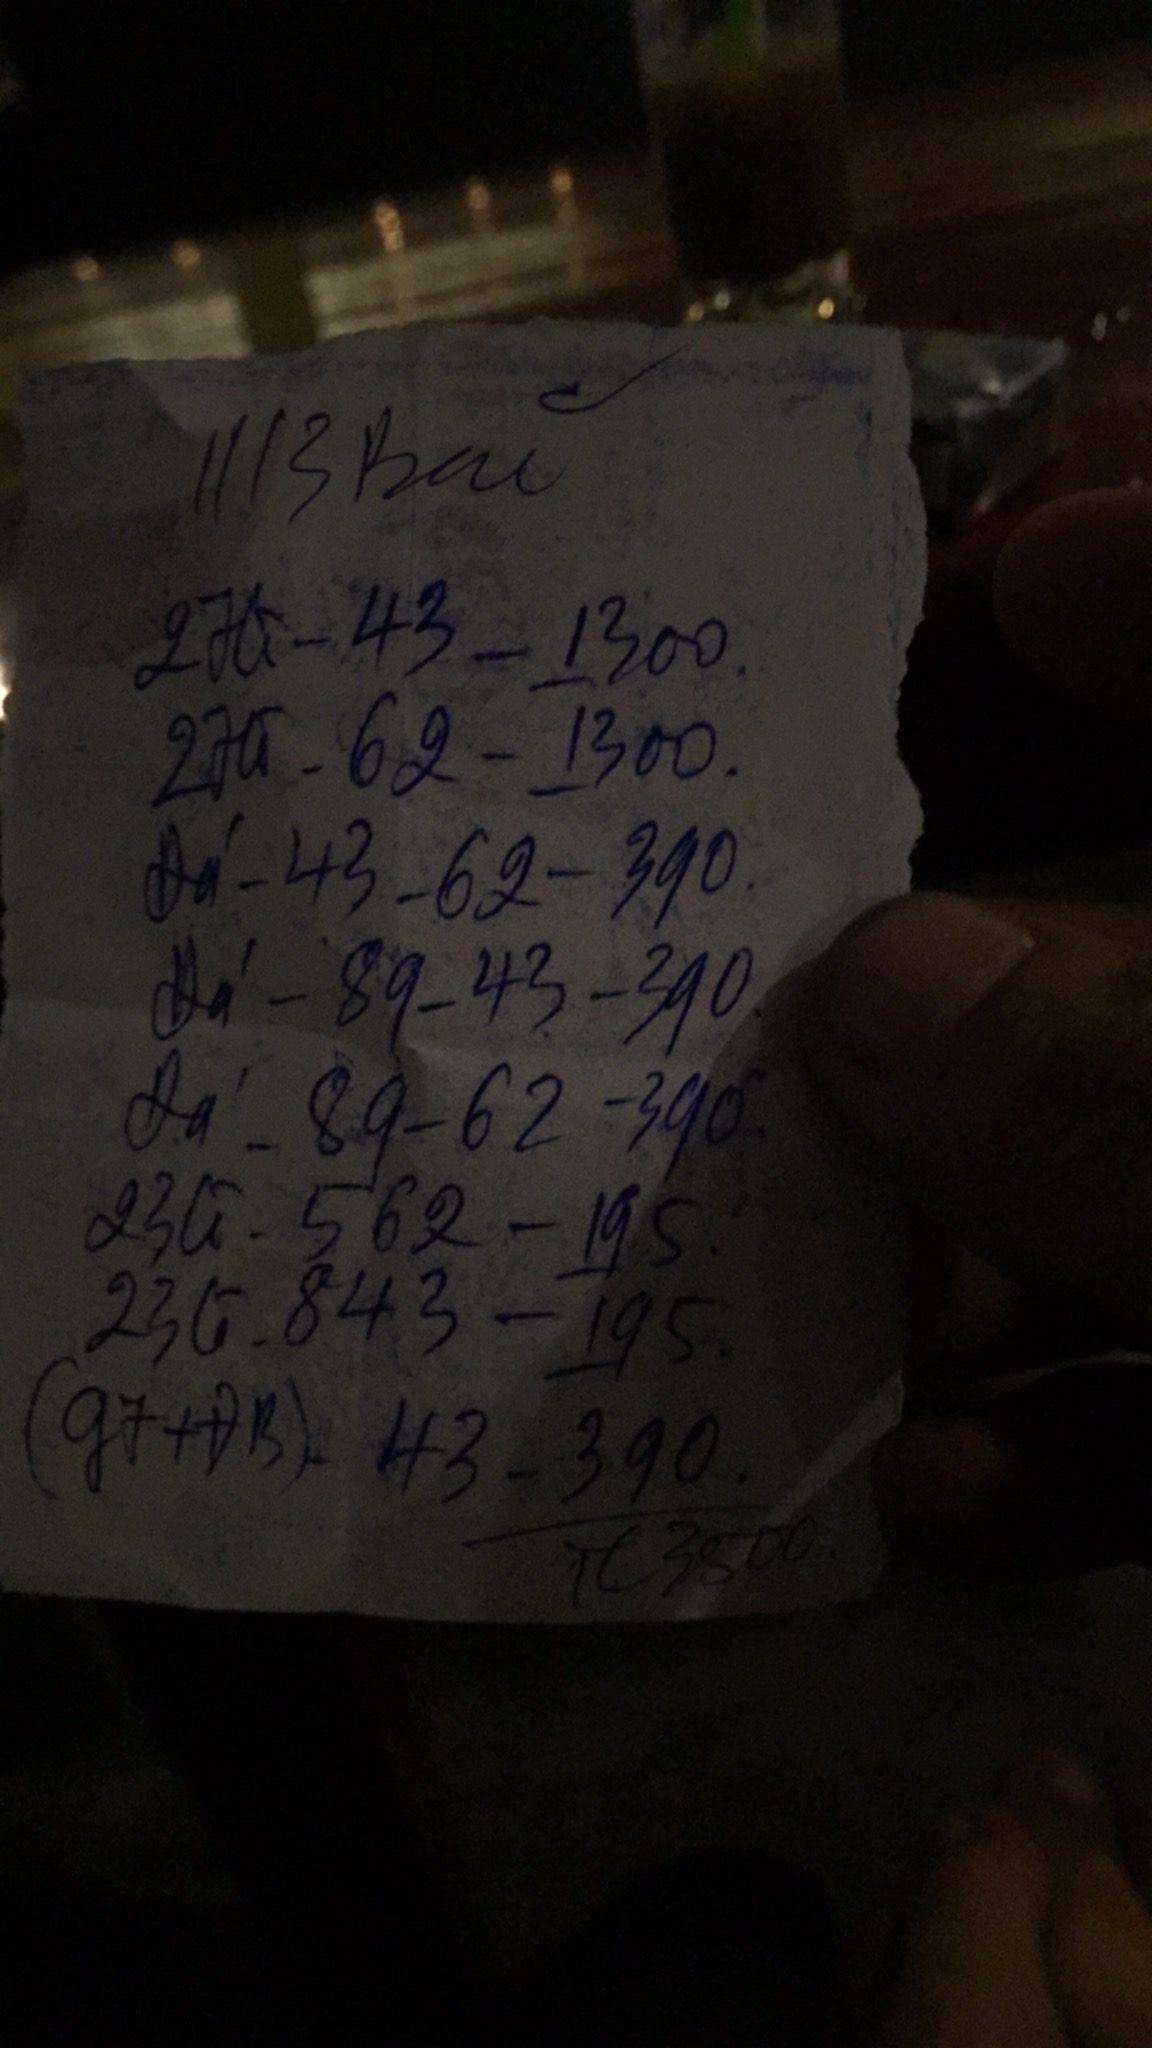 11/3 Bac
27lô - 43 - 1300.
27lô - 62 - 1300.
Đá - 43 - 62 - 390.
Đá - 89 - 43 - 390.
Đá - 89 - 62 - 390.
23lô - 562 - 195.
23lô - 843 - 195.
(g7+ĐB) - 43 - 390.
TC 3800.